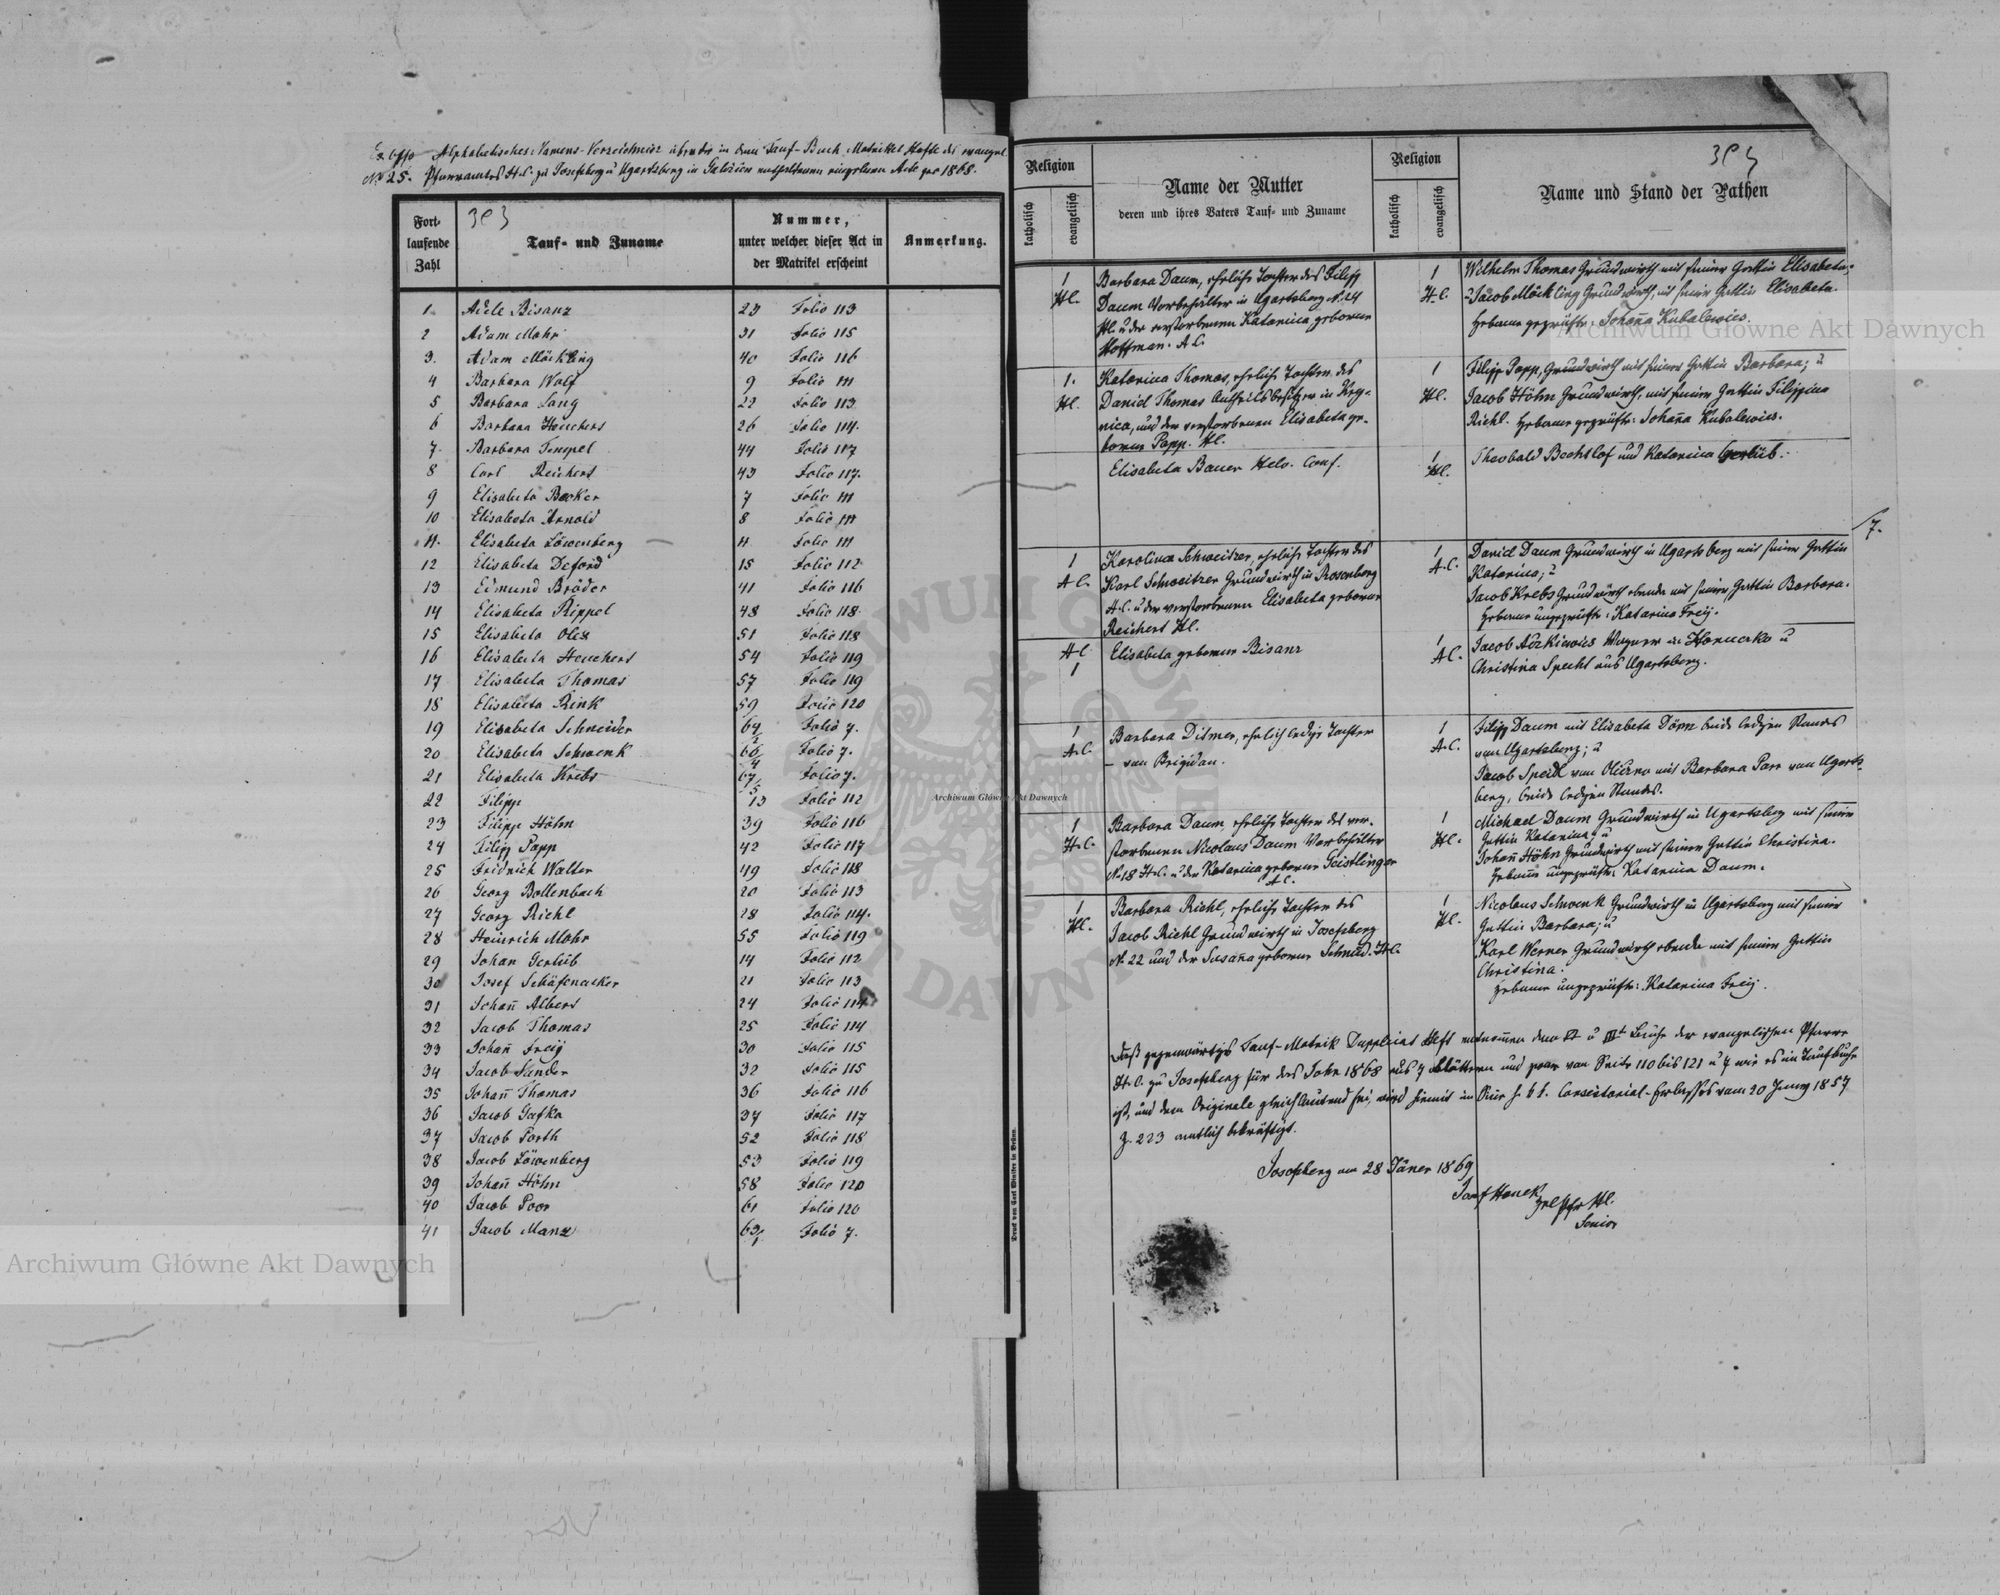 Ex offo Alphabetisches Namens-Verzeichniss über die in dem Tauf-Buch Matrikel Hefte des evangel.
No 25. Pfarramtes H.C. zu Josefsberg u Ugartsberg in Galizien enthaltenen einzelnen Acte pro 1868.
393
Fort-
laufende
Zahl
Tauf- und Zuname
Nummer,
unter welcher dieser Act in
der Matrikel erscheint
Anmerkung.
1 Adele Bisanz 23 Folio 113
2 Adam Mohr 31 Folio 115
3. Adam Möckling 40 Folio 116
4 Barbara Wolf 9 Folio 111
5 Barbara Lang 22 Folio 113
6 Barbara Heuchert 26 Folio 114.
7. Barbara Tempel 44 Folio 117
8 Carl Reichert 43 Folio 117.
9 Elisabeta Becker 7 Folio 111
10 Elisabeta Arnold 8 Folio 111
11. Elisabeta Löwenberg 11 Folio 111
12 Elisabeta Deford 15 Folio 112
13 Edmund Bröder 41 Folio 116
14 Elisabeta Rippel 48 Folio 118.
15 Elisabeta Olex 51 Folio 118
16 Elisabeta Heuchert 54 Folio 119
17 Elisabeta Thomas 57 Folio 119
18 Elisabeta Rink 59 Folio 120
19 Elisabeta Schneider 64/2 Folio 7.
20 Elisabeta Schwenk 66/4 Folio 7.
21 Elisabeta Krebs 67/5 Folio 7.
22 Filipp 13 Folio 112
23 Filipp Höhn 39 Folio 116
24 Filipp Papp 42 Folio 117
25 Fridrich Walter 49 Folio 118
26 Georg Bollenbach 20 Folio 113
27 Georg Riehl 28 Folio 114.
28 Heinrich Mohr 55 Folio 119
29 Johan Gerlüb 14 Folio 112
30 Josef Schäfenacker 21 Folio 113
31 Johan̄ Albert 24 Folio 114
32 Jacob Thomas 25 Folio 114
33 Johan̄ Freij 30 Folio 115
34 Jacob Sander 32 Folio 115
35 Johan̄ Thomas 36 Folio 116
36 Jacob Gafka 34 Folio 117
37 Jacob Porth 52 Folio 118
38 Jacob Löwenberg 53 Folio 119
39 Johan̄ Höhn 58 Folio 120
40 Jacob Poor 61 Folio 120
41 Jacob Manz 63/1 Folio 7.
Druck von Carl Winiker in Brünn.
Religion
katholisch
evangelisch
Name der Mutter
deren und ihres Vaters Tauf- und Zuname
Religion
katholisch
evangelisch
393
Name und Stand der Pathen
1
H.C.
Barbara Daum, ehrliche Tochter des Filipp
Daum Vorbehälter in Ugartsberg No. 24
H.C. u der verstorbenen Katarina geborene
Hoffman. A.C.
1
H.C.
Wilhelm Thomas Grundwirth mit seiner Gattin Elisabeta;
Jacob Möckling Grundwirth, mit seiner Gattin Elisabeta.
Hebame geprüfte: Johan̄a Kubalewics.
1.
H.C.
Katarina Thomas, ehrliche Tochter des
Daniel Thomas Antheilsbesitzer in Kry-
nica, und der verstorbenen Elisabeta ge-
borene Papp. H.C.
1
H.C.
Filipp Papp, Grundwirth mit seiner Gattin Barbara; u
Jacob Höhn Grundwirth, mit seiner Gattin Filippina
Riehl. Hebame geprüfte: Johan̄a Kubalewics.
Elisabeta Bauer Helv. Conf.
1
H.C.
Theobald Bechtlof und Katarina Gerlüb.
7.
1
A.C.
Karolina Schweitzer, ehrliche Tochter des
Karl Schweitzer Grundwirth in Rosenberg
A.C. u der verstorbenen Elisabeta geborene
Reichert H.C.
1
A.C.
David Daum Grundwirth in Ugartsberg mit seiner Gattin
Katarina; u
Jacob Krebs Grundwirth ebenda mit seiner Gattin Barbara.
Hebame ungeprüfte: Katarina Freij.
H.C.
1
Elisabeta geborene Bisanz
1
A.C.
Jacob Wagner u
Christina Specht aus Ugartsberg.
1
A.C.
Barbara Ditmer, ehrlich ledige Tochter
- von Brigidau.
1
A.C.
Filipp Daum mit Elisabeta Dörn beide ledigen Standes
von Ugartsberg; u
Jacob Speidl von mit Barbara Parr von Ugarts-
berg, beide ledigen Standes.
1
H.C.
Barbara Daum, ehrliche Tochter des ver-
storbenen Nicolaus Daum Vorbehälter
No 18 H.C. u der Katarina geborene Geistlinger
A.C.
1
H.C.
Michael Daum Grundwirth in Ugartsberg mit seiner
Gattin Katarina; u
Johan̄ Höhn Grundwirth mit seiner Gattin Christina.
Hebame ungeprüfte Katarina Daum.
1
H.C.
Barbara Riehl, ehrliche Tochter des
Jacob Riehl Grundwirth in Josefsberg
No. 22 und der Susan̄a geborene Schmid. H.C.
1
H.C.
Nicolaus Schwenk Grundwirth in Ugartsberg mit seiner
Gattin Barbara; u
Karl Werner Grundwirth ebenda mit seiner Gattin
Christina.
Hebame ungeprüfte: Katarina Freij.
Daß gegenwärtiges Tauf-Matrik Duplicat Heft entnom̄en dem IIt u IIIt Buche der evangelischen Pfarre
H.C. zu Josefsberg für das Jahr 1868 aus 7 Blättern und zwar von Seite 110 bis 121 u 7 wie es im Taufbuche
ist, und dem Originale gleichlautend sei, wird hiemit im Consistorial-Erlasses vom 20 1857
Z. 223 amtlich bekräftigt.
Josefsberg am 28 Jäner 1869
Josef Hanek
H.C.
Senior
Archiwum Główne Akt Dawnych
Archiwum Główne Akt Dawnych
Archiwum Główne Akt Dawnych
ARCHIWUM GŁÓWNE AKT DAWNYCH